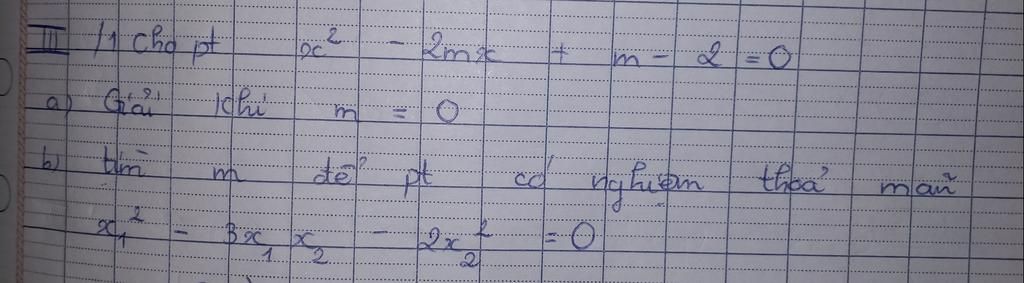 III /1 cho pt x² - 2mx + m - 2 = 0
a) Giải khi m = 0
b) tìm m để pt có nghiệm thoả mãn
x₁² - 3x₁x₂ - 2x₂² = 0